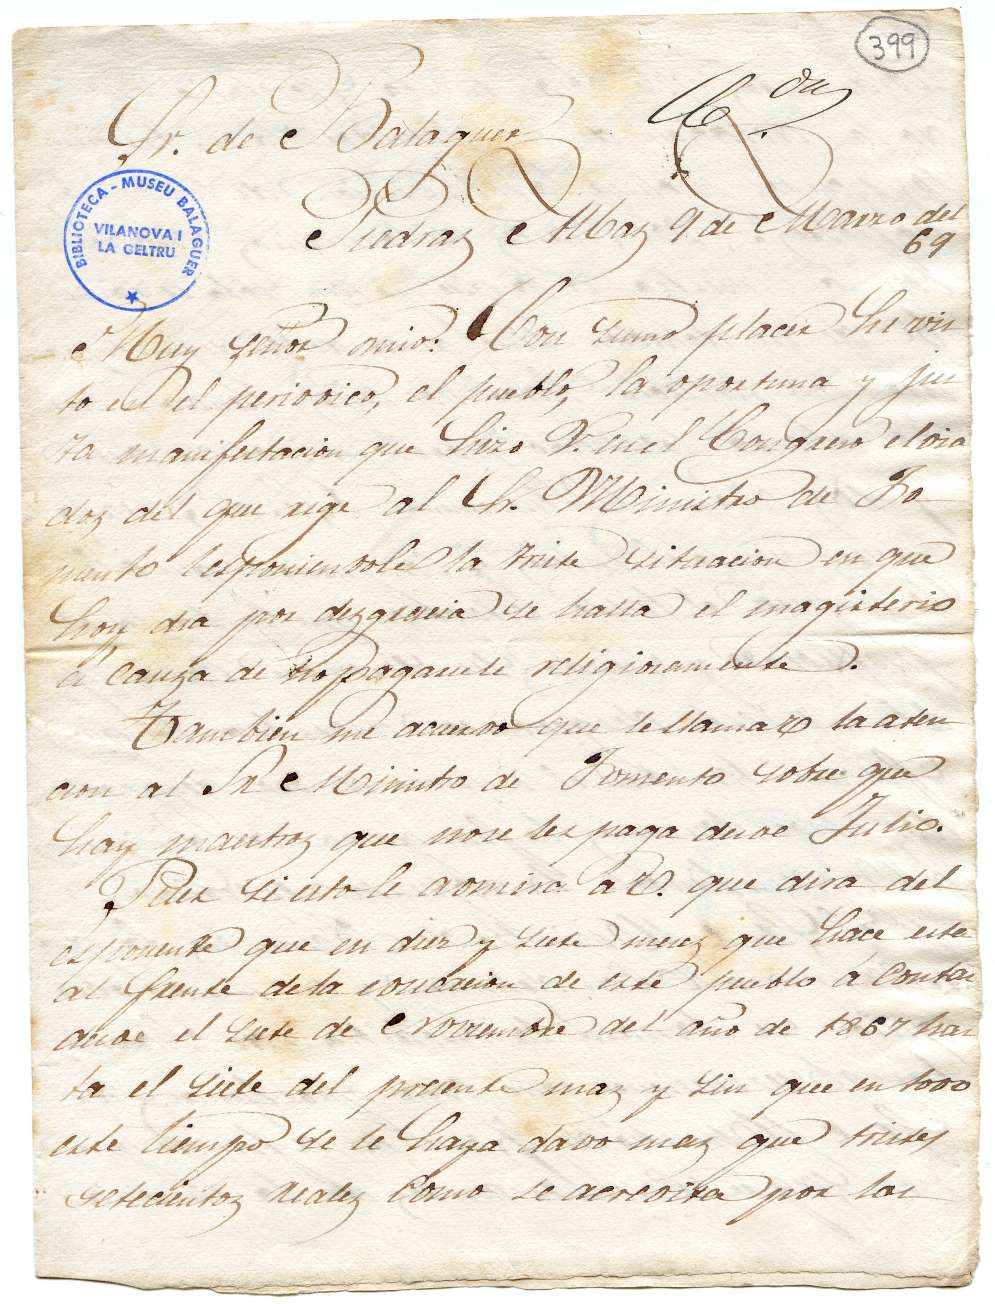 399
Sr. de Balaguer
C.da
BIBLIOTECA - MUSEU BALAGUER
VILANOVA I
LA GELTRU
Piedraz Albaz 9 de Marzo del
69
Muy señor mio: Con sumo placer he vis
to en el periorico, el pueblo, la oportuna y jus
ta manifestacion que hizo V. en el Congreso
doz del que rige al Sr. Ministro de Fo
mento esponiendole la triste situacion en que
hoy dia por dezgracia se halla el magisterio
á cauza de no pagarsele religiosamente.
Tambien me acuerdo que le llamaz V. la aten
cion al Sr Ministro de Fomento sobre que
hay maestroz que nose lez paga desde Julio.
Puez si esto le admira a V. que dira del
esponente que en diez y siete mesez que hace este
al frente dela educacion de este pueblo a contar
desde el siete de Noviembre del año de 1867 has
ta el siete del presente maz y sin que en todo
este tiempo se le haya dado maz que tristes
setecientoz realez como se acredita por los